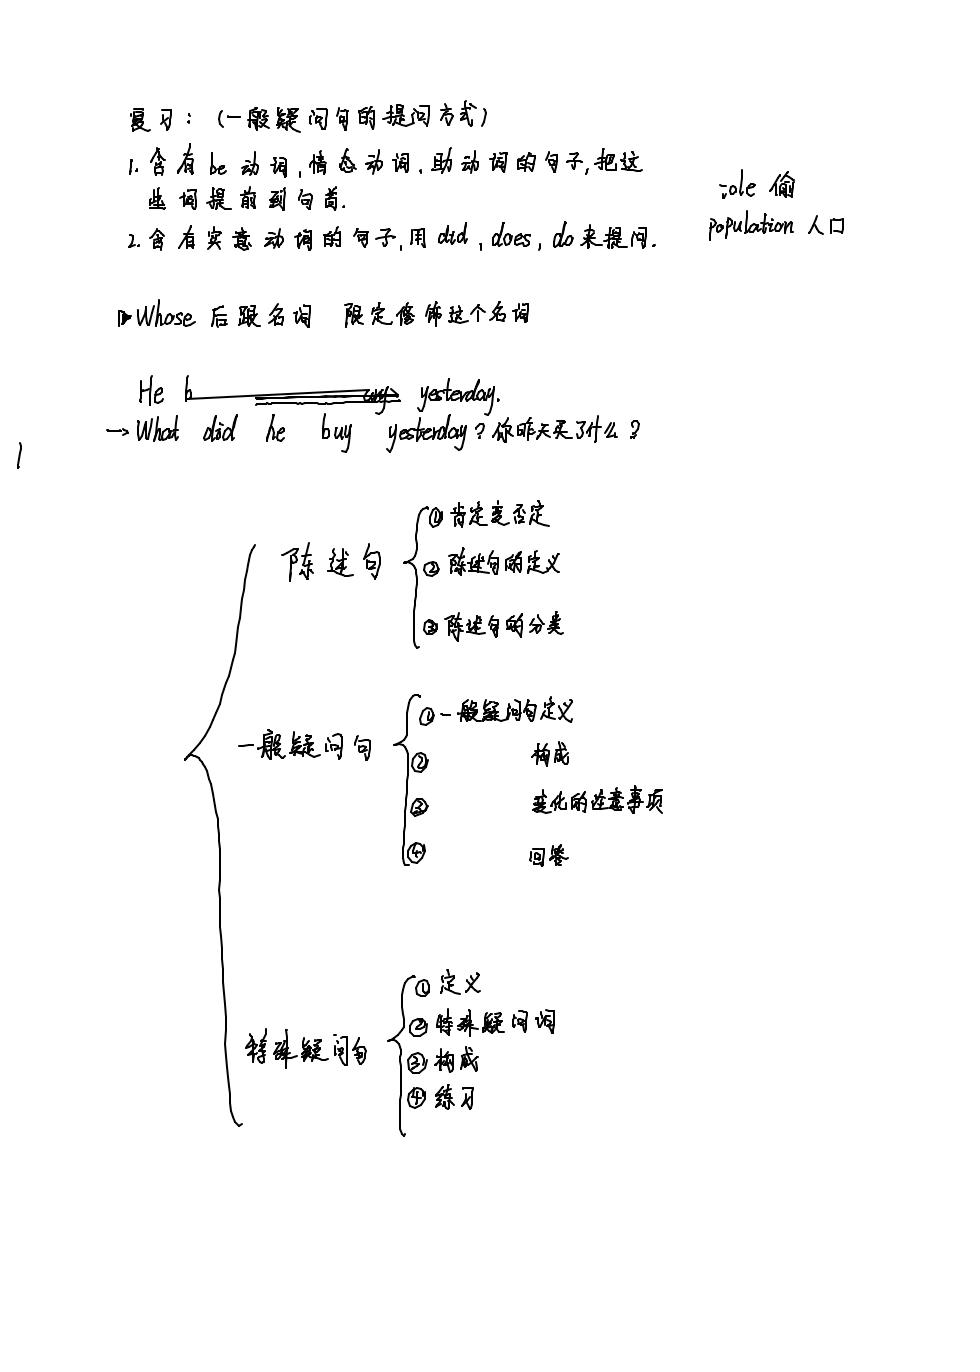 复习：（一般疑问句的提问方式）
1. 含有 be 动词,情态动词,助动词的句子,把这
些词提前到句首.
ole 偷
2. 含有实意动词的句子,用 did, does, do 来提问.
population 人口
Whose 后跟名词 限定修饰这个名词
He b yesterday.
→ What did he buy yesterday? 你昨天买了什么?
陈述句
① 肯定变否定
② 陈述句的定义
③ 陈述句的分类
一般疑问句
① 一般疑问句定义
② 构成
③ 变化的注意事项
④ 回答
特殊疑问句
① 定义
② 特殊疑问词
③ 构成
④ 练习